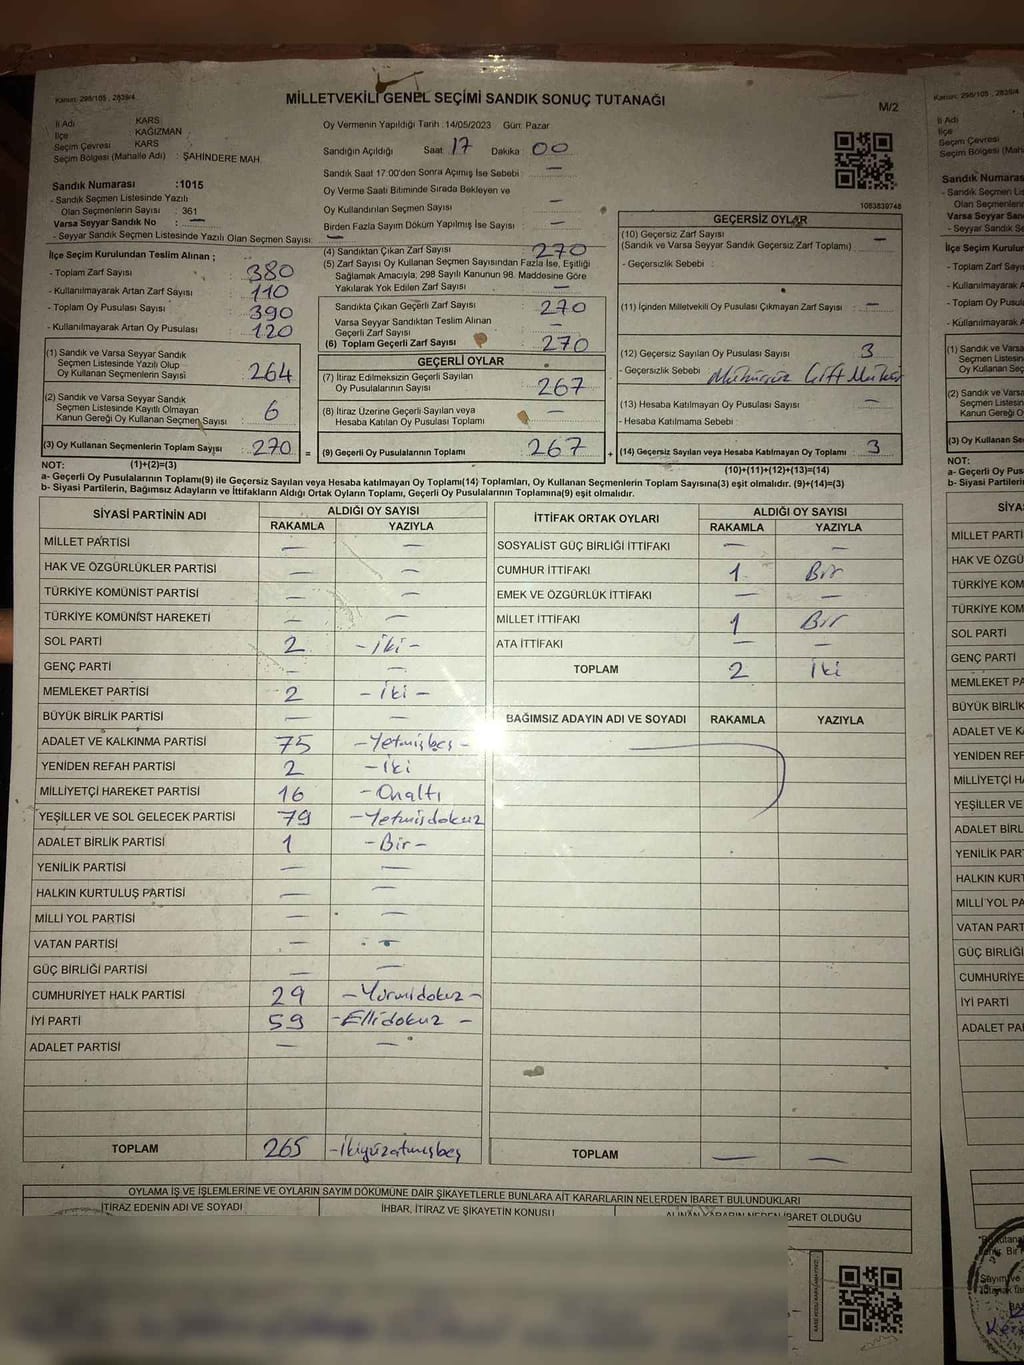 Kanun: 298/105 , 2839/4
MİLLETVEKİLİ GENEL SEÇİMİ SANDIK SONUÇ TUTANAĞI
M/2
İl Adı KARS
İlçe KAĞIZMAN
Seçim Çevresi KARS
Seçim Bölgesi (Mahalle Adı) : ŞAHİNDERE MAH.
Sandık Numarası :1015
- Sandık Seçmen Listesinde Yazılı
Olan Seçmenlerin Sayısı : 361
Varsa Seyyar Sandık No : —
- Seyyar Sandık Seçmen Listesinde Yazılı Olan Seçmen Sayısı: —
Oy Vermenin Yapıldığı Tarih :14/05/2023 Gün: Pazar
Sandığın Açıldığı Saat 17 Dakika 00
Sandık Saat 17:00'den Sonra Açımış İse Sebebi —
Oy Verme Saati Bitiminde Sırada Bekleyen ve
Oy Kullandırılan Seçmen Sayısı —
Birden Fazla Sayım Döküm Yapılmış İse Sayısı : —
1083839748
İlçe Seçim Kurulundan Teslim Alınan ;
- Toplam Zarf Sayısı : 380
- Kullanılmayarak Artan Zarf Sayısı : 110
- Toplam Oy Pusulası Sayısı : 390
- Kullanılmayarak Artan Oy Pusulası : 120
(1) Sandık ve Varsa Seyyar Sandık
Seçmen Listesinde Yazılı Olup
Oy Kullanan Seçmenlerin Sayısı : 264
(2) Sandık ve Varsa Seyyar Sandık
Seçmen Listesinde Kayıtlı Olmayan
Kanun Gereği Oy Kullanan Seçmen Sayısı : 6
(3) Oy Kullanan Seçmenlerin Toplam Sayısı : 270 =
(4) Sandıktan Çıkan Zarf Sayısı : 270
(5) Zarf Sayısı Oy Kullanan Seçmen Sayısından Fazla İse, Eşitliği
Sağlamak Amacıyla; 298 Sayılı Kanunun 98. Maddesine Göre
Yakılarak Yok Edilen Zarf Sayısı : —
Sandıkta Çıkan Geçerli Zarf Sayısı : 270
Varsa Seyyar Sandıktan Teslim Alınan
Geçerli Zarf Sayısı : —
(6) Toplam Geçerli Zarf Sayısı 270
GEÇERLİ OYLAR
(7) İtiraz Edilmeksizin Geçerli Sayılan
Oy Pusulalarının Sayısı : 267
(8) İtiraz Üzerine Geçerli Sayılan veya
Hesaba Katılan Oy Pusulası Toplamı : —
(9) Geçerli Oy Pusulalarının Toplamı : 267 +
GEÇERSİZ OYLAR
(10) Geçersiz Zarf Sayısı
(Sandık ve Varsa Seyyar Sandık Geçersiz Zarf Toplamı) : —
- Geçersizlik Sebebi :
(11) İçinden Milletvekili Oy Pusulası Çıkmayan Zarf Sayısı : —
(12) Geçersiz Sayılan Oy Pusulası Sayısı : 3
- Geçersizlik Sebebi : Mühürsüz Çift Mühür
(13) Hesaba Katılmayan Oy Pusulası Sayısı : —
- Hesaba Katılmama Sebebi :
(14) Geçersiz Sayılan veya Hesaba Katılmayan Oy Toplamı : 3
NOT: (1)+(2)=(3) (10)+(11)+(12)+(13)=(14)
a- Geçerli Oy Pusulalarının Toplamı(9) ile Geçersiz Sayılan veya Hesaba katılmayan Oy Toplamı(14) Toplamları, Oy Kullanan Seçmenlerin Toplam Sayısına(3) eşit olmalıdır. (9)+(14)=(3)
b- Siyasi Partilerin, Bağımsız Adayların ve İttifakların Aldığı Ortak Oyların Toplamı, Geçerli Oy Pusulalarının Toplamına(9) eşit olmalıdır.
SİYASİ PARTİNİN ADI ALDIĞI OY SAYISI
RAKAMLA YAZIYLA
MİLLET PARTİSİ — —
HAK VE ÖZGÜRLÜKLER PARTİSİ — —
TÜRKİYE KOMÜNİST PARTİSİ — —
TÜRKİYE KOMÜNİST HAREKETİ — —
SOL PARTİ 2 -iki-
GENÇ PARTİ — —
MEMLEKET PARTİSİ 2 -iki-
BÜYÜK BİRLİK PARTİSİ — —
ADALET VE KALKINMA PARTİSİ 75 -Yetmişbeş-
YENİDEN REFAH PARTİSİ 2 -iki
MİLLİYETÇİ HAREKET PARTİSİ 16 -Onaltı
YEŞİLLER VE SOL GELECEK PARTİSİ 79 -Yetmişdokuz
ADALET BİRLİK PARTİSİ 1 -Bir-
YENİLİK PARTİSİ — —
HALKIN KURTULUŞ PARTİSİ — —
MİLLİ YOL PARTİSİ — —
VATAN PARTİSİ — —
GÜÇ BİRLİĞİ PARTİSİ — —
CUMHURİYET HALK PARTİSİ 29 -Yirmidokuz-
İYİ PARTİ 59 -Ellidokuz-
ADALET PARTİSİ — —
TOPLAM 265 -ikiyüzatmışbeş
İTTİFAK ORTAK OYLARI ALDIĞI OY SAYISI
RAKAMLA YAZIYLA
SOSYALİST GÜÇ BİRLİĞİ İTTİFAKI — —
CUMHUR İTTİFAKI 1 Bir
EMEK VE ÖZGÜRLÜK İTTİFAKI — —
MİLLET İTTİFAKI 1 Bir
ATA İTTİFAKI — —
TOPLAM 2 iki
BAĞIMSIZ ADAYIN ADI VE SOYADI RAKAMLA YAZIYLA
TOPLAM — —
OYLAMA İŞ VE İŞLEMLERİNE VE OYLARIN SAYIM DÖKÜMÜNE DAİR ŞİKAYETLERLE BUNLARA AİT KARARLARIN NELERDEN İBARET BULUNDUKLARI
İTİRAZ EDENİN ADI VE SOYADI İHBAR, İTİRAZ VE ŞİKAYETİN KONUSU ALINAN KARARIN NEDEN İBARET OLDUĞU
Kanun: 298/105 , 2839/4
İl Adı
İlçe
Seçim Çevresi
Seçim Bölgesi (Mah
Sandık Numaras
- Sandık Seçmen Lis
Olan Seçmenlerin
Varsa Seyyar San
- Seyyar Sandık Se
İlçe Seçim Kurulun
- Toplam Zarf Sayısı
- Kullanılmayarak A
- Toplam Oy Pusula
- Kullanılmayarak
(1) Sandık ve Varsa
Seçmen Listesin
Oy Kullanan Se
(2) Sandık ve Varsa
Seçmen Listesin
Kanun Gereği O
(3) Oy Kullanan Se
NOT:
a- Geçerli Oy Pus
b- Siyasi Partilerin
SİYA
MİLLET PARTİ
HAK VE ÖZGÜ
TÜRKİYE KOM
TÜRKİYE KOM
SOL PARTİ
GENÇ PARTİ
MEMLEKET PA
BÜYÜK BİRLİK
ADALET VE K
YENİDEN REF
MİLLİYETÇİ HA
YEŞİLLER VE
ADALET BİRL
YENİLİK PAR
HALKIN KURT
MİLLİ YOL PA
VATAN PART
GÜÇ BİRLİĞİ
CUMHURİYE
İYİ PARTİ
ADALET PA